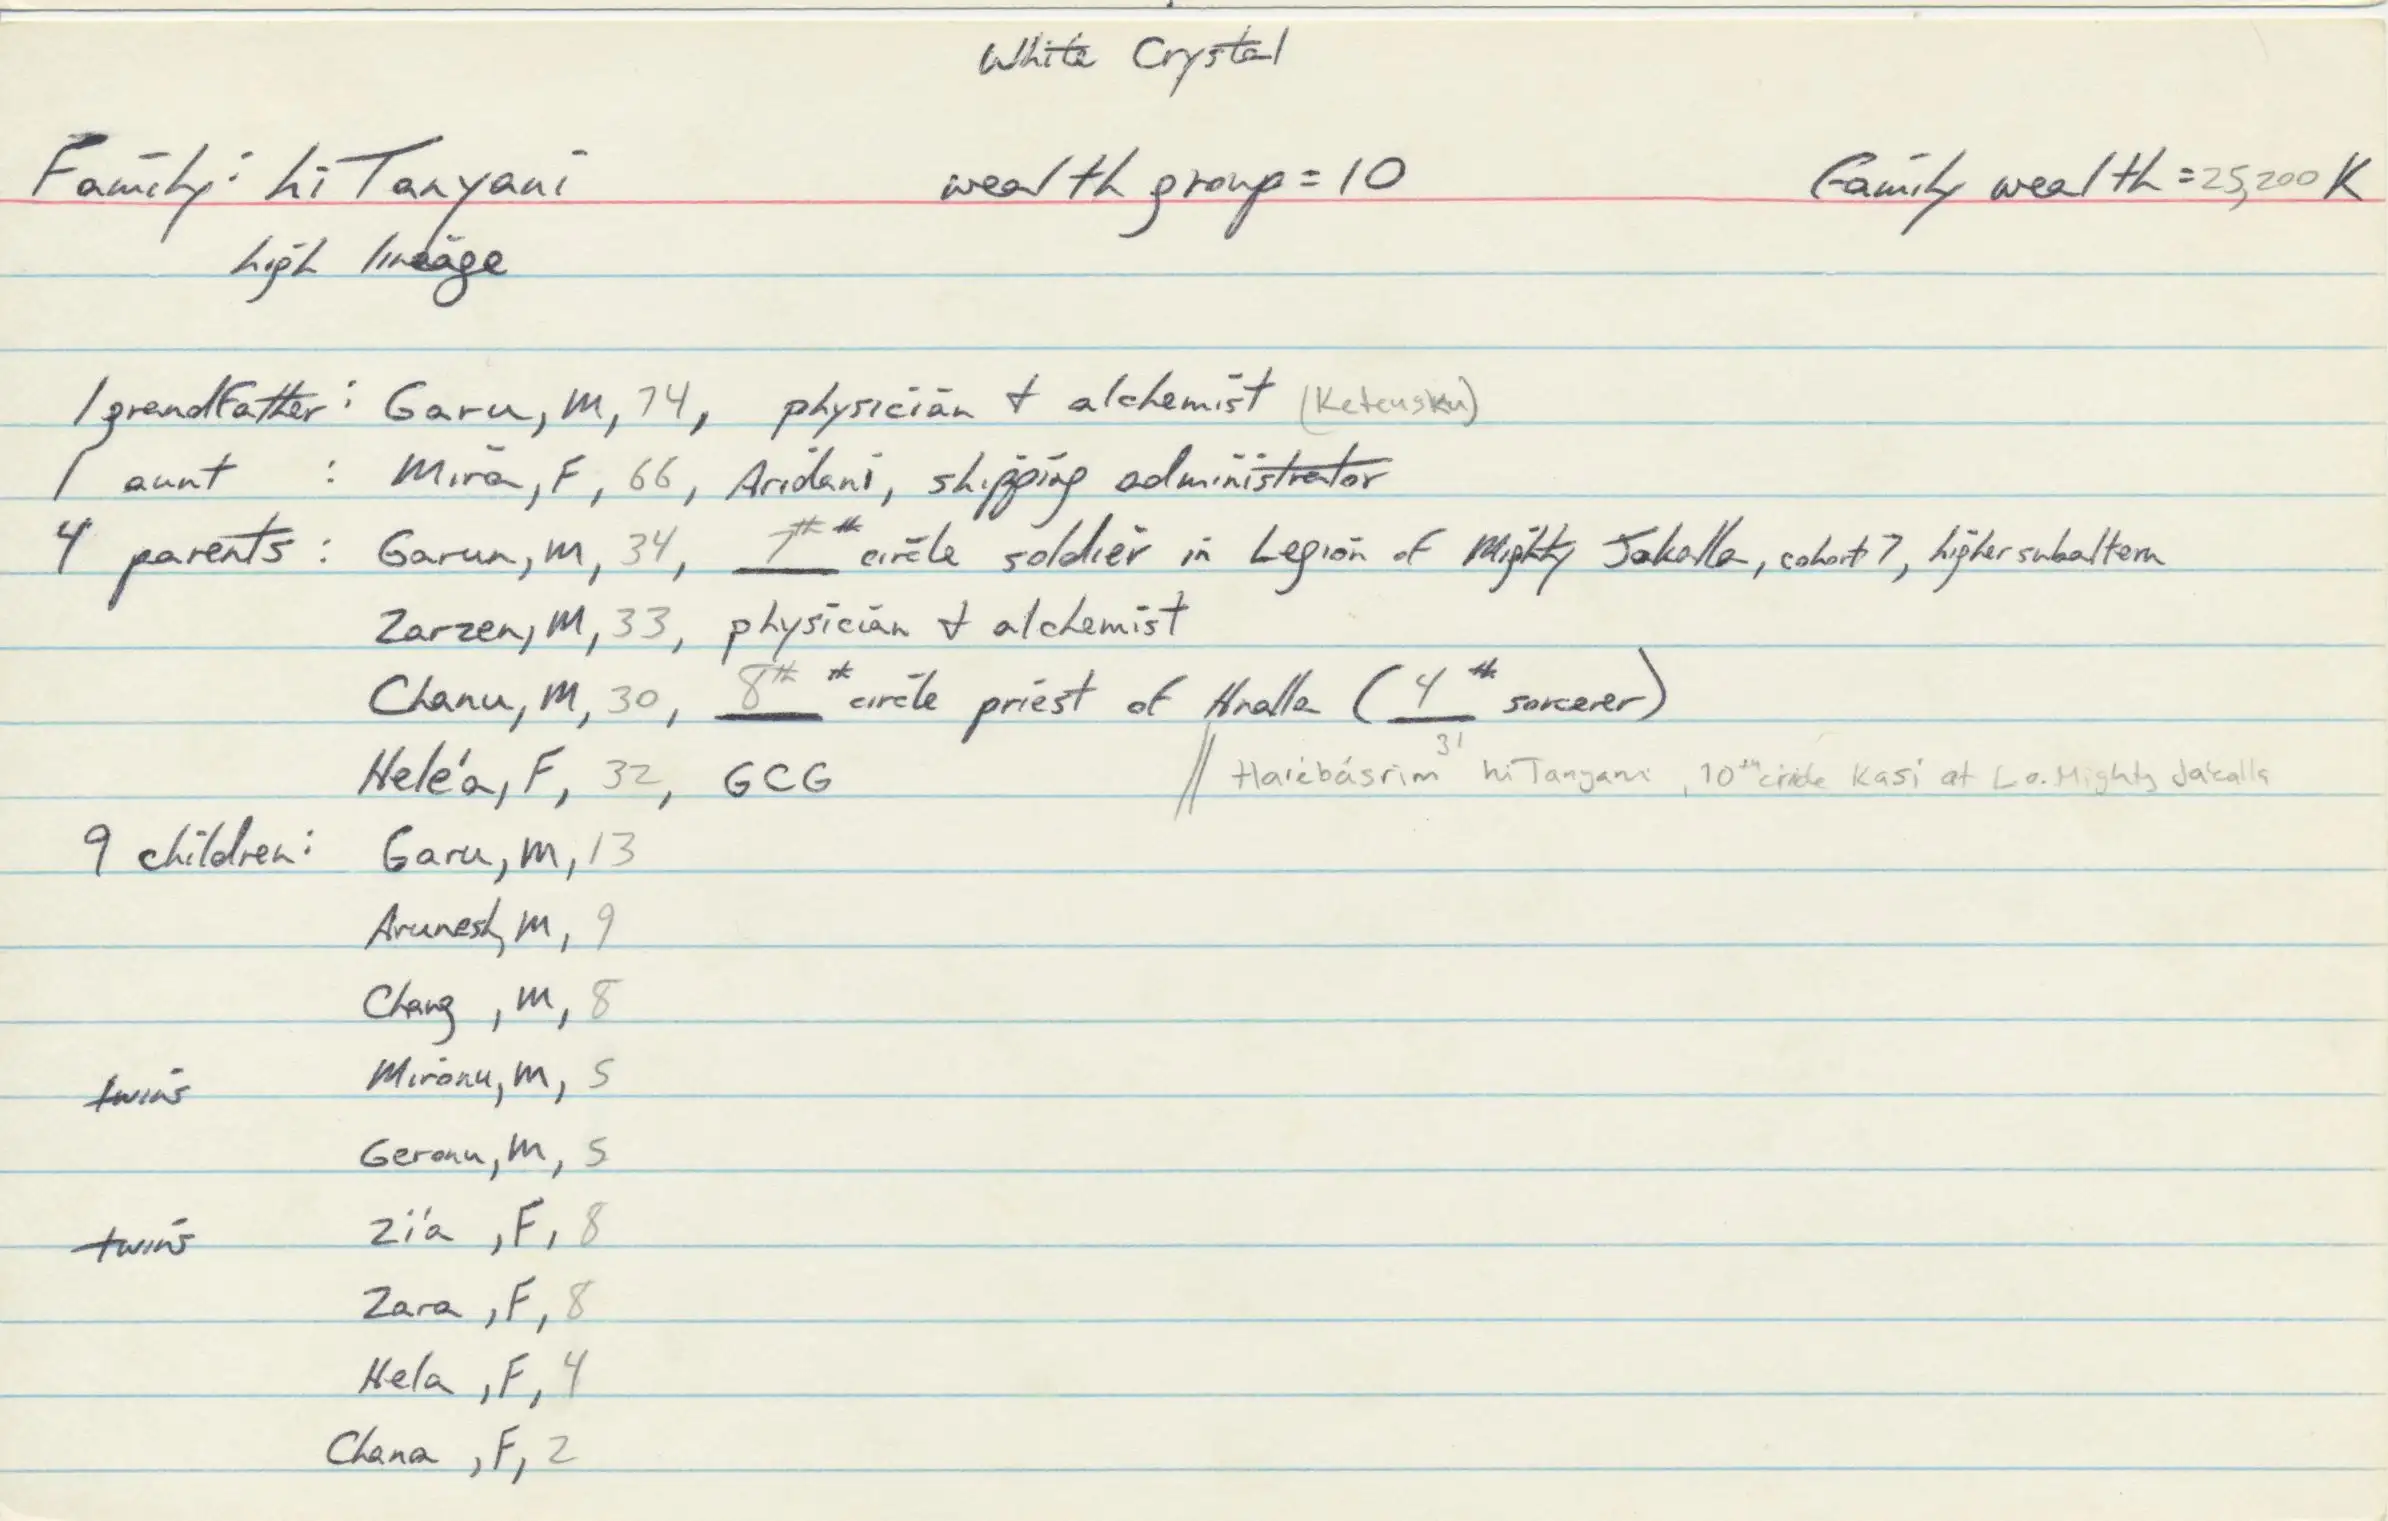 White Crystal
Family: hiTanyani wealth group = 10 family wealth = 25,200 K
high lineage
1 grandfather: Garu, M, 74, physician & alchemist (Ketengku)
1 aunt : Mira, F, 66, Aridani, shipping administrator
4 parents : Garun, M, 34, 7th th circle soldier in Legion of Mighty Jakalla, cohort 7, higher subaltern
Zarzen, M, 33, physician & alchemist
Chanu, M, 30, 8th th circle priest of Hnalla (4 th sorcerer)
Hele'a, F, 32, GCG // 31 hiTanyani, 10th circle Kasi of Lo. Mighty Jakalla
9 children: Garu, M, 13
Arunesh, M, 9
Chang, M, 8
twins Mironu, M, 5
Geronu, M, 5
twins Zi'a, F, 8
Zara, F, 8
Hela, F, 4
Chana, F, 2